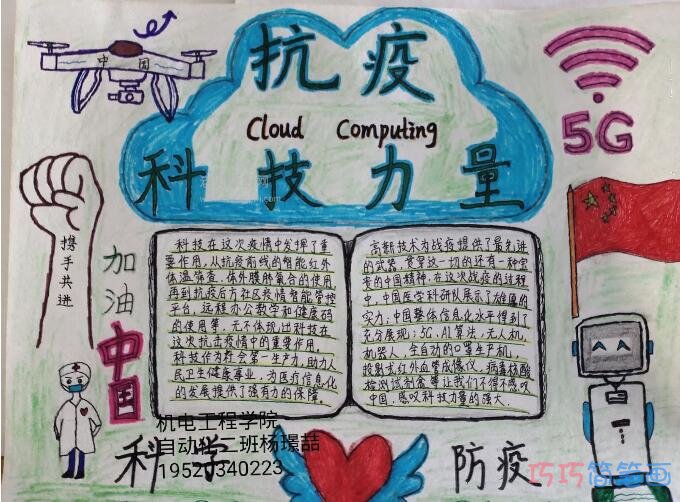 中国
抗疫
Cloud Computing
科技力量
5G
携手共进
加油
中国
科技在这次疫情中发挥了重
要作用,从抗疫前线的智能红外
体温筛查、体外膜肺氧合的使用,
再到抗疫后方社区疫情智能管控
平台,远程办公教学和健康码
的使用等,无不体现出科技在
这次抗击疫情中的重要作用。
科技作为社会第一生产力,助力人
民卫生健康事业,为医疗信息化
的发展提供了强有力的保障。
高新技术为战疫提供了最先进
的武器,贯穿这一切的还有一种宝
贵的中国精神,在这次战疫的过程
中,中国医学科研队展示了雄厚的
实力;中国整体信息化水平得到了
充分展现;5G、AI算法、无人机、
机器人、全自动的口罩生产机、
投射式红外血管成像仪、病毒核酸
检测试剂盒等让我们不得不感叹
中国,感叹科技力量的强大.
机电工程学院
自动化二班杨璟喆
19529340223
科学
防疫
巧巧简笔画